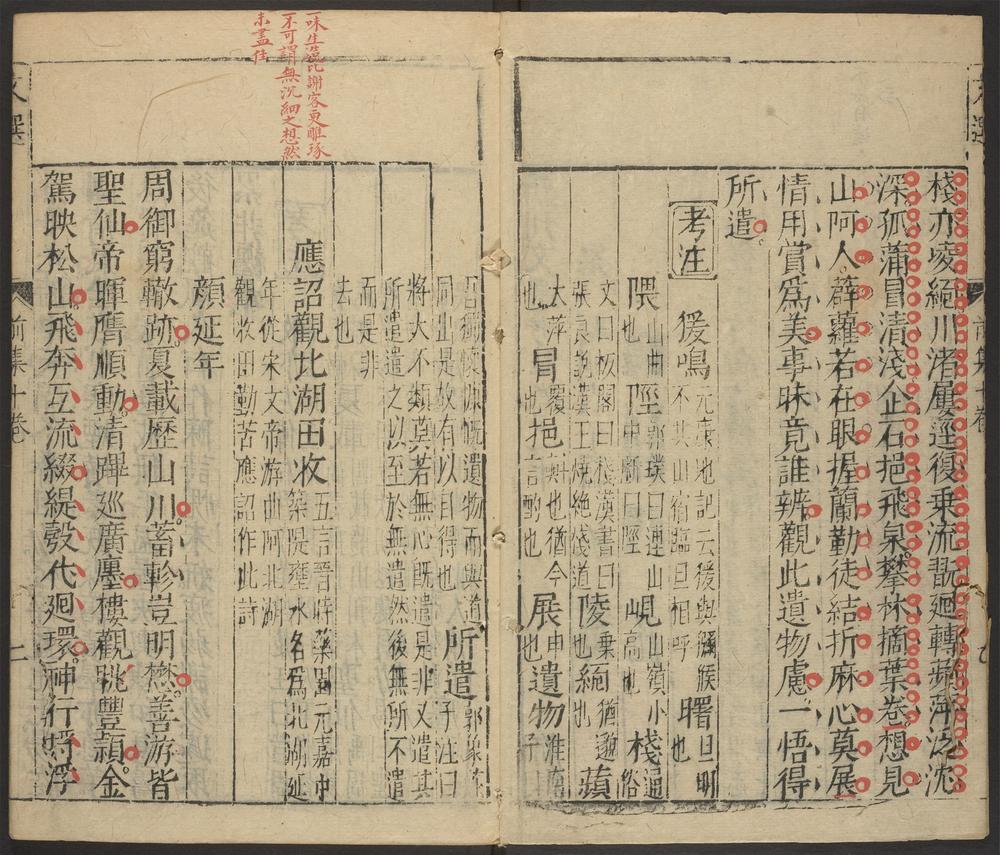 一味生蔬比謝客更雕琢
不可謂無沉細之想然
未盡佳
文選
前集十卷
棧亦凌緬川渚屢逕復乗流翫廻轉蘋萍泛沈
深菰蒲冒清淺企石挹飛泉攀林摘葉卷想見
山阿人薜蘿若在眼握蘭勤徒結折麻心莫展
情用賞爲美事昧竟誰辨觀此遺物慮一悟得
所遣
考注
猨鳴 元康地記云猨與獼猴不共山宿臨旦相呼 曙 旦明也
隈 山曲也 陘 郭璞曰連山中斷曰陘 峴 山嶺小高也 棧 通俗
文曰板閣曰棧漢書曰張良說漢王燒絶淺道也 陵 乗也 緬 猶邈也 蘋
大萍也 冒 覆也 挹 㪺也猶今言酌也 展 申也 遺物 淮南子
曰獨懷慷慨遺物而與道同出是故有以自得也 所遣 郭象莊子注曰
將大不類莫若無心既遣是非又遣其
所遣遣之以至於無遣然後無所不遣
而是非
去也
應詔觀北湖田收 五言晉時藥園元嘉中築隄壅水名爲北湖延
年從宋文帝游曲阿北湖
觀收田勤苦應詔作此詩
顔延年
周御窮轍跡夏載歷山川蓄軫豈明懋善游皆
聖仙帝暉膺順動清蹕巡廣廛樓觀眺豐穎金
駕映松山飛奔互流綴緹彀代廻環神行埓浮
文選
前集十卷
二